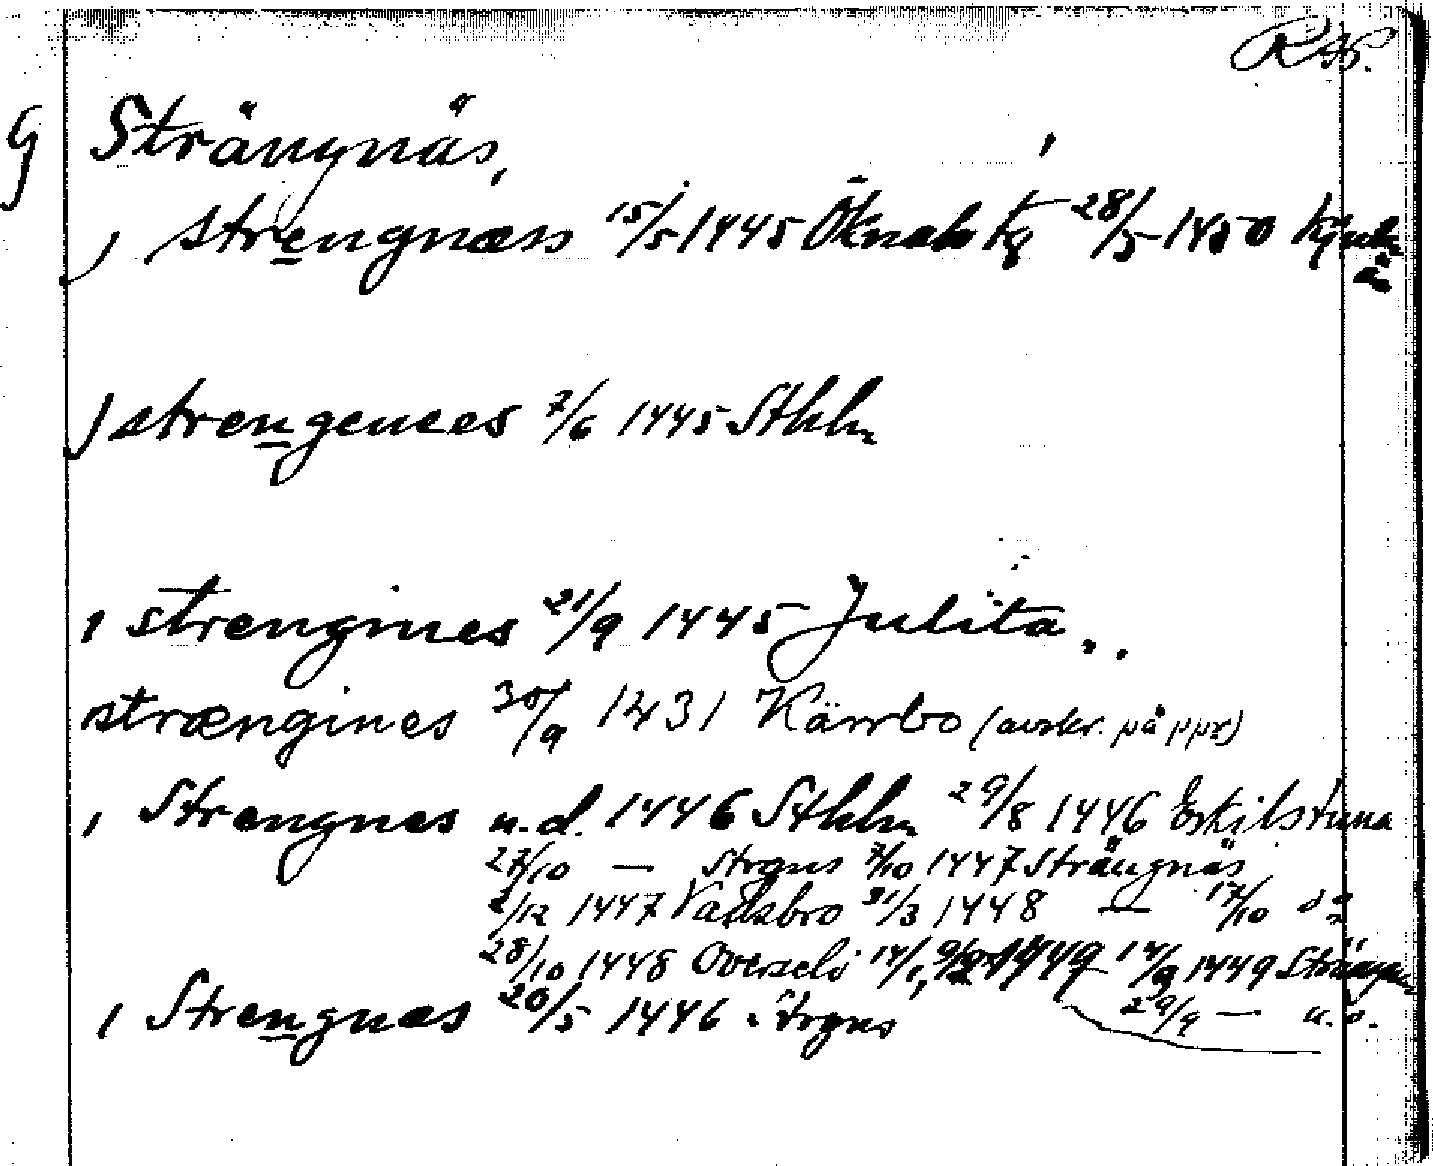 G Strängnäs,
, strengnæs 15/5 1445 Öknabokg 28/5 1450
) strengenees 7/6 1445 Sthlm
, strengines 21/9 1445 Julita..
strængines 30/9 1431 Kärrbo (avskr. på ppr)
, Strengnes u.d. 1446 Sthlm 29/8 1446 Eskilstuna
27/10 — Strgns 7/10 1447 Strängnäs
2/12 1447 Vadsbro 31/3 1448 — 17/10 så
28/10 1448 Överselö 14/1, 9/2 1449 14/9 1449
29/9 — u.o.
, Strengnæs 20/5 1446 Strgns